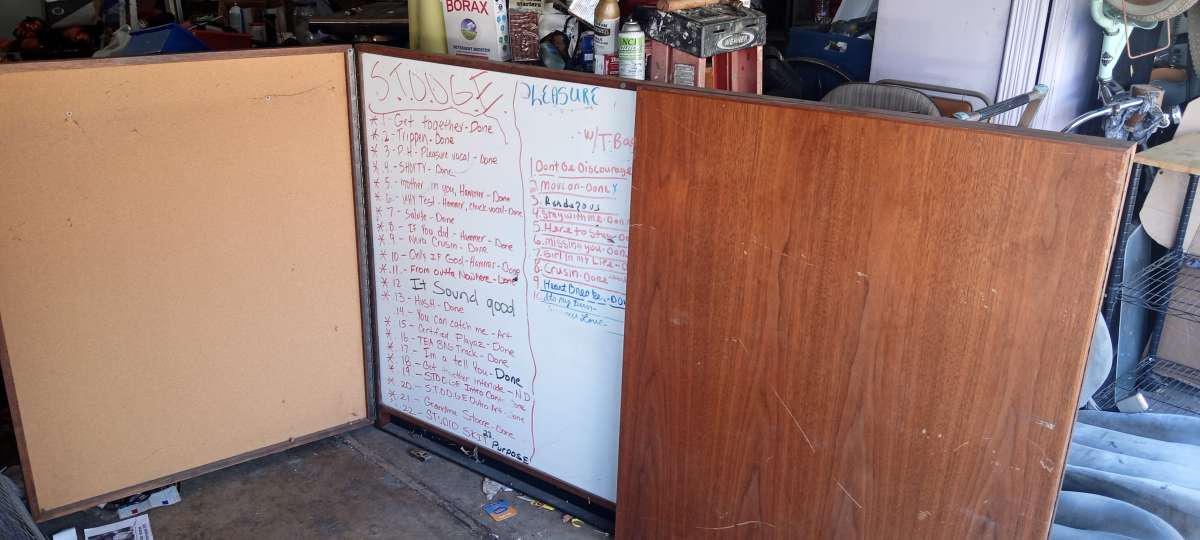 BORAX
WERNER
S.T.O.D.G.E
* 1. Get together - Done
* 2. - Trippen - Done
* 3 - P.H - Pleasure vocal - Done
* 4 - SHAITY - Done
* 5. - mother in you, Hammer - Done
* 6 - WHY Test - Hammer, chuck vocal - Done
* 7 - Salute - Done
* 8. - If You did - Hammer - Done
* 9 - Nova Crusin - Done
* 10 - Only IF God - Hammer - Done
* 11. - From outta Nowhere - Done
* 12 It Sound good
* 13 - HUSH - Done
14 - You can catch me - Art
* 15 - Certified Playaz - Done
* 16 - TEA BAG Track - Done
* 17 - Im a tell You - Done
* 18 - Get together interlude - ND
* 19 - STODGE Intro
* 20. - S.T.O.D.G.E Outro Art - Done
* 21. - Grandma Stove - Done
* 22. - STUDIO SKIT
23 Purpose
PLEASURE
w/T-Ba
1 Dont Be Discourage
2 Move on - Done Y
3. Rendezous
4. Stay with me - Don
5. Here to Stay - Do
6. missing you - Don
7. Girl in my Life -
8. Crusin - Done
9 Heart Breaker - Don